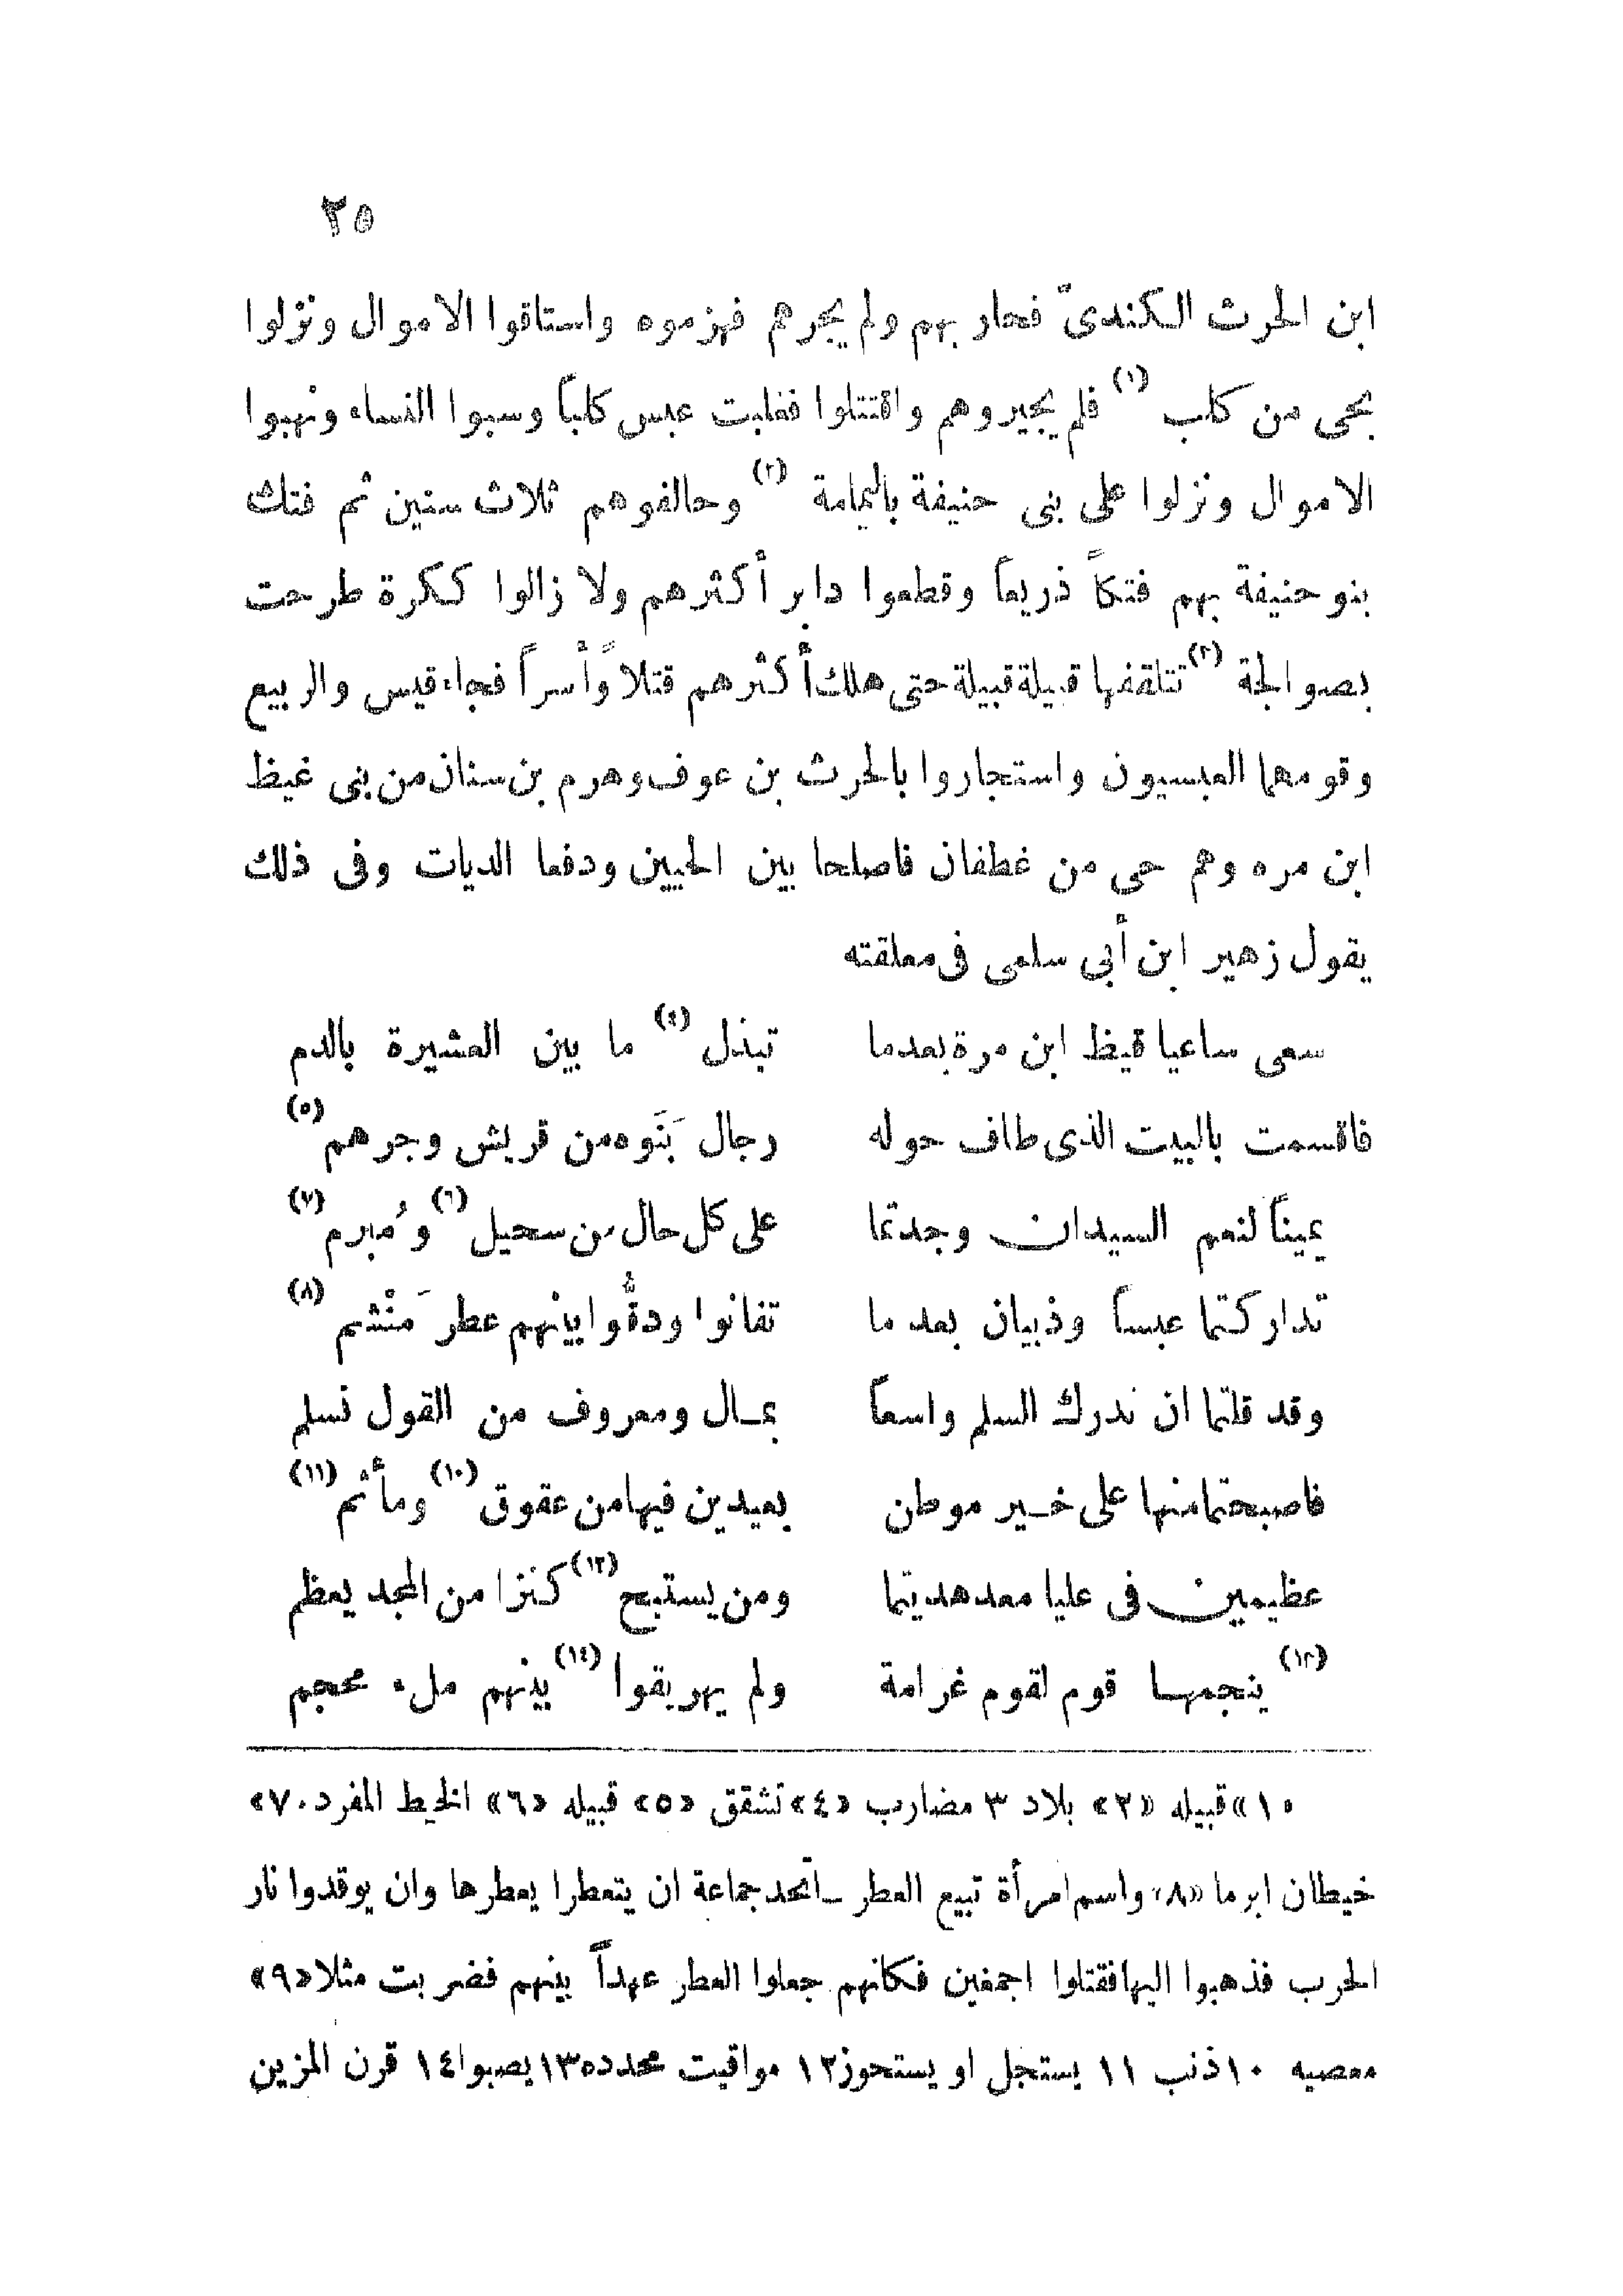 ٢٥
ابن الحرث الكندىّ فحاربهم ولم يجرهم فهزموه واستاقوا الاموال ونزلوا
بحى من كلب (١) فلم يجيروهم واقتتلوا فغلبت عبس كلباً وسبوا النساء ونهبوا
الاموال ونزلوا على بنى حنيفة باليمامة (٢) وحالفوهم ثلاث سنين ثم فتك
بنو حنيفة بهم فتكاً ذريعاً وقطعوا دابر أكثرهم ولا زالوا ككرة طرحت
بصوالجة (٣) تتلقفها قبيلة قبيلة حتى هلك أكثرهم قتلاً وأسراً فجاء قيس والربيع
وقومهما العبسيون واستجاروا بالحرث بن عوف وهرم بن سنان من بنى غيظ
ابن مره وهم حى من غطفان فاصلحا بين الحيين ودفعا الديات وفى ذلك
يقول زهير ابن أبى سلمى فى معلقته
سعى ساعيا قيظ ابن مرة بعدما تبذل (٤) ما بين العشيرة بالدم
فاقسمت بالبيت الذى طاف حوله رجال بَنَوه من قريش وجرهم (٥)
يميناً لنعم السيدان وجدتما على كل حال من سحيل (٦) ومُبرم (٧)
تداركتما عبساً وذبيان بعد ما تفانوا ودقُّوا بينهم عطر مَنْشم (٨)
وقد قلتما ان ندرك السلم واسعاً بمال ومعروف من القول نسلم
فاصبحتما منها على خير موطن بعيدين فيها من عقوق (١٠) ومأثم (١١)
عظيمين فى عليا معد هديتما ومن يستبح (١٢) كنزا من المجد يعظم
(١٣) ينجمها قوم لقوم غرامة ولم يهريقوا (١٤) بينهم ملء محجم
«١» قبيله «٢» بلاد ٣ مضارب «٤» تشقق «٥» قبيله «٦» الخيط المفرد «٧»
خيطان ابرما «٨» واسم امرأة تبيع العطر _ اتحد جماعة ان يتعطرا بعطرها وان يوقدوا نار
الحرب فذهبوا اليها فقتلوا اجمعين فكانهم جعلوا العطر عهداً بينهم فضربت مثلا «٩»
معصيه ١٠ ذنب ١١ يستجل او يستحوز ١٢ مواقيت محدده ١٣ يصبوا ١٤ قرن المزين